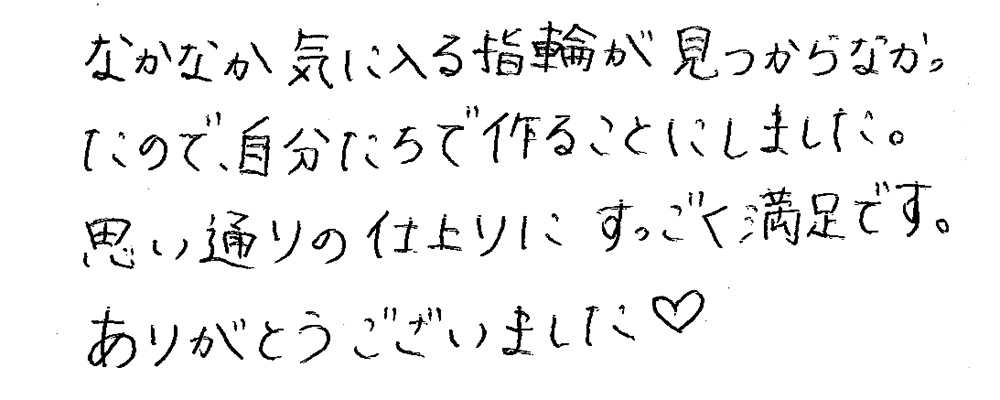 なかなか気に入る指輪が見つからなかっ
たので、自分たちで作ることにしました。
思い通りの仕上りにすっごく満足です。
ありがとうございました♡